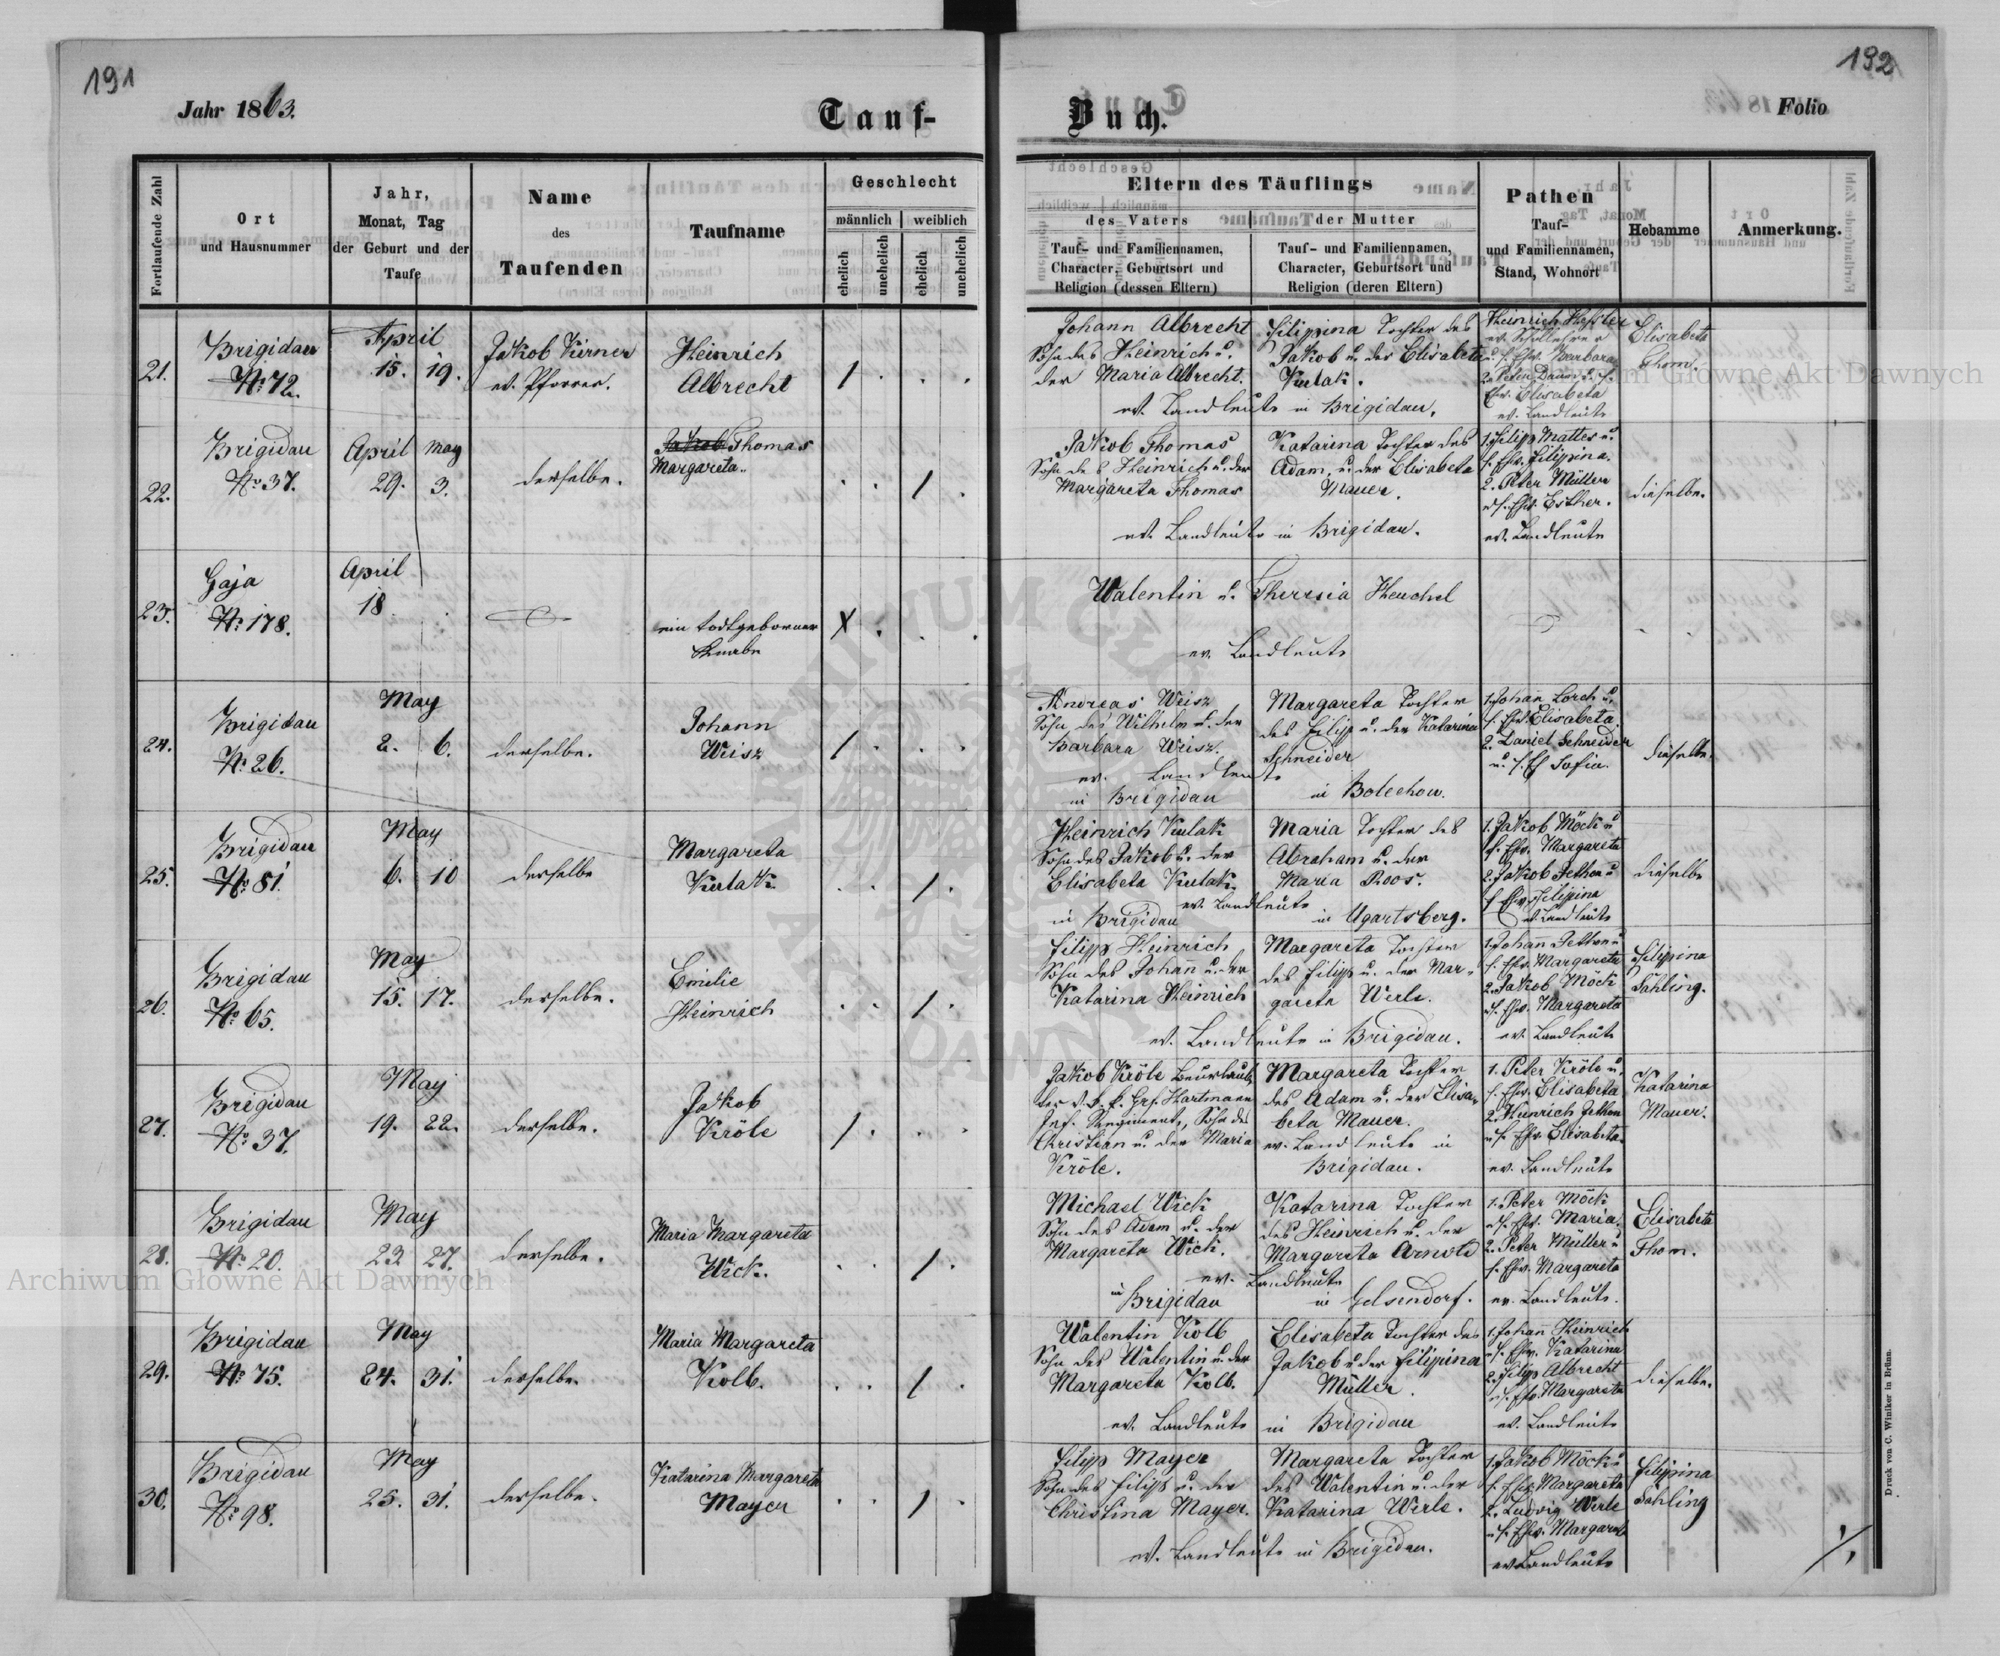 191
192
Jahr 1863.
Tauf-
Buch.
Folio
Fortlaufende Zahl
Ort
und Hausnummer
Jahr,
Monat, Tag
der Geburt und der
Taufe
Name
des
Taufenden
Taufname
Geschlecht
männlich
weiblich
ehelich
unehelich
ehelich
unehelich
Eltern des Täuflings
des Vaters
der Mutter
Tauf- und Familiennamen,
Character, Geburtsort und
Religion (dessen Eltern)
Tauf- und Familiennamen,
Character, Geburtsort und
Religion (deren Eltern)
Pathen
Tauf-
und Familiennamen,
Stand, Wohnort
Hebamme
Anmerkung.
21.
Brigidau
No 72.
April
15. 19.
Jakob Kirner
ev. Pfarrer.
Heinrich
Albrecht
/ . . .
Johann Albrecht
Sohn des Heinrich u.
der Maria Albrecht.
Filipina Tochter des
Jakob u. der Elisabeta
Kulak.
ev. Landleute in Brigidau.
Heinrich
ev. Schullehrer
u. s. Ehw. Barbara
2. Peter
Ehw. Elisabeta
ev. Landleute
Elisabeta
Thom.
22.
Brigidau
No 37.
April May
29. 3.
derselbe.
Jakob Thomas
Margareta
. . / .
Jakob Thomas
Sohn des Heinrich u. der
Margareta Thomas
Katarina Tochter des
Adam u. der Elisabeta
Mauer.
ev. Landleute in Brigidau.
1. Filipp Mattes u.
s. Ehw. Filipina.
2. Peter Müller
u. s. Ehw. Esther.
ev. Landleute
dieselbe.
23.
Gaja
No 178.
April
18.
ein todtgeborner
Knabe
X . . .
Walentin u. Theresia Heuchel
ev. Landleute
24.
Brigidau
No 26.
May
2. 6.
derselbe.
Johann
Weisz
/ . . .
Andreas Weisz
Sohn des Wilhelm u. der
Barbara Weisz.
Margareta Tochter
des Filipp u. der Katarina
Schneider
ev. Landleute
in Brigidau
in Bolechow.
1. Johan Lorch u.
s. Ehw. Elisabeta.
2. Daniel Schneider
u. s. Eh Sofia.
dieselbe.
25.
Brigidau
No 81.
May
6. 10
derselbe
Margareta
Kulak.
. . / .
Heinrich Kulak
Sohn des Jakob u. der
Elisabeta Kulak.
Maria Tochter des
Abraham u. der
Maria Roos.
ev. Landleute
in Brigidau
in Ugartsberg.
1. Jakob Möck u
s. Ehw. Margareta
2. Jakob Jethon u
s. Ehw. Filipina
ev. Landleute
dieselbe
26.
Brigidau
No 65.
May
15. 17.
derselbe.
Emilie
Heinrich
. . / .
Filipp Heinrich
Sohn des Johann u. der
Katarina Heinrich
Margareta Tochter
des Filipp u. der Mar-
gareta Werle.
ev. Landleute in Brigidau.
1. Johann Jethon u
s. Ehw. Margareta
2. Jakob Möck
u. s. Ehw. Margareta
ev. Landleute
Filipina
Sahling.
27.
Brigidau
No 37.
May
19. 22.
derselbe.
Jakob
Kröle
/ . . .
Jakob Kröle Beurlaub-
ter d. k. k. Grf. Hartmann
Inf. Regiment, Sohn des
Christian u. der Maria
Kröle.
Margareta Tochter
des Adam u. der Elisa-
beta Mauer.
ev. Landleute in
Brigidau.
1. Peter Kröle u.
s. Ehw. Elisabeta
2. Heinrich Jethon
u. s. Ehw. Elisabeta.
ev. Landleute
Katarina
Mauer.
28.
Brigidau
No 20.
May
23 27.
derselbe.
Maria Margareta
Wick.
. . / .
Michael Wick
Sohn des Adam u. der
Margareta Wick.
Katarina Tochter
des Heinrich u. der
Margareta Arnold
ev. Landleute
in Brigidau
in Gelsendorf.
1. Peter Möck
u. s. Ehw. Maria.
2. Peter Müller u
s. Ehw. Margareta
ev. Landleute.
Elisabeta
Thom.
29.
Brigidau
No 75.
May
24. 31.
derselbe.
Maria Margareta
Kolb.
. . / .
Walentin Kolb
Sohn des Walentin u. der
Margareta Kolb.
Elisabeta Tochter des
Jakob u der Filipina
Müller.
ev. Landleute in Brigidau
1. Johann Heinrich
u. s. Ehw. Katarina
2. Filipp Albrecht
u. s. Ehw. Margareta
ev. Landleute
dieselbe.
30.
Brigidau
No 98.
May
25. 31.
derselbe.
Katarina Margareta
Mayer
. . / .
Filipp Mayer
Sohn des Filipp u. der
Christina Mayer.
Margareta Tochter
des Walentin u. der
Katarina Werle.
ev. Landleute in Brigidau.
1. Jakob Möck u
s. Ehw. Margareta
2. Ludwig Werle
u. s. Ehw. Margaret
ev. Landleute
Filipina
Sahling
Druck von C. Winiker in Brünn.
Archiwum Główne Akt Dawnych
Archiwum Główne Akt Dawnych
ARCHIWUM GŁÓWNE AKT DAWNYCH